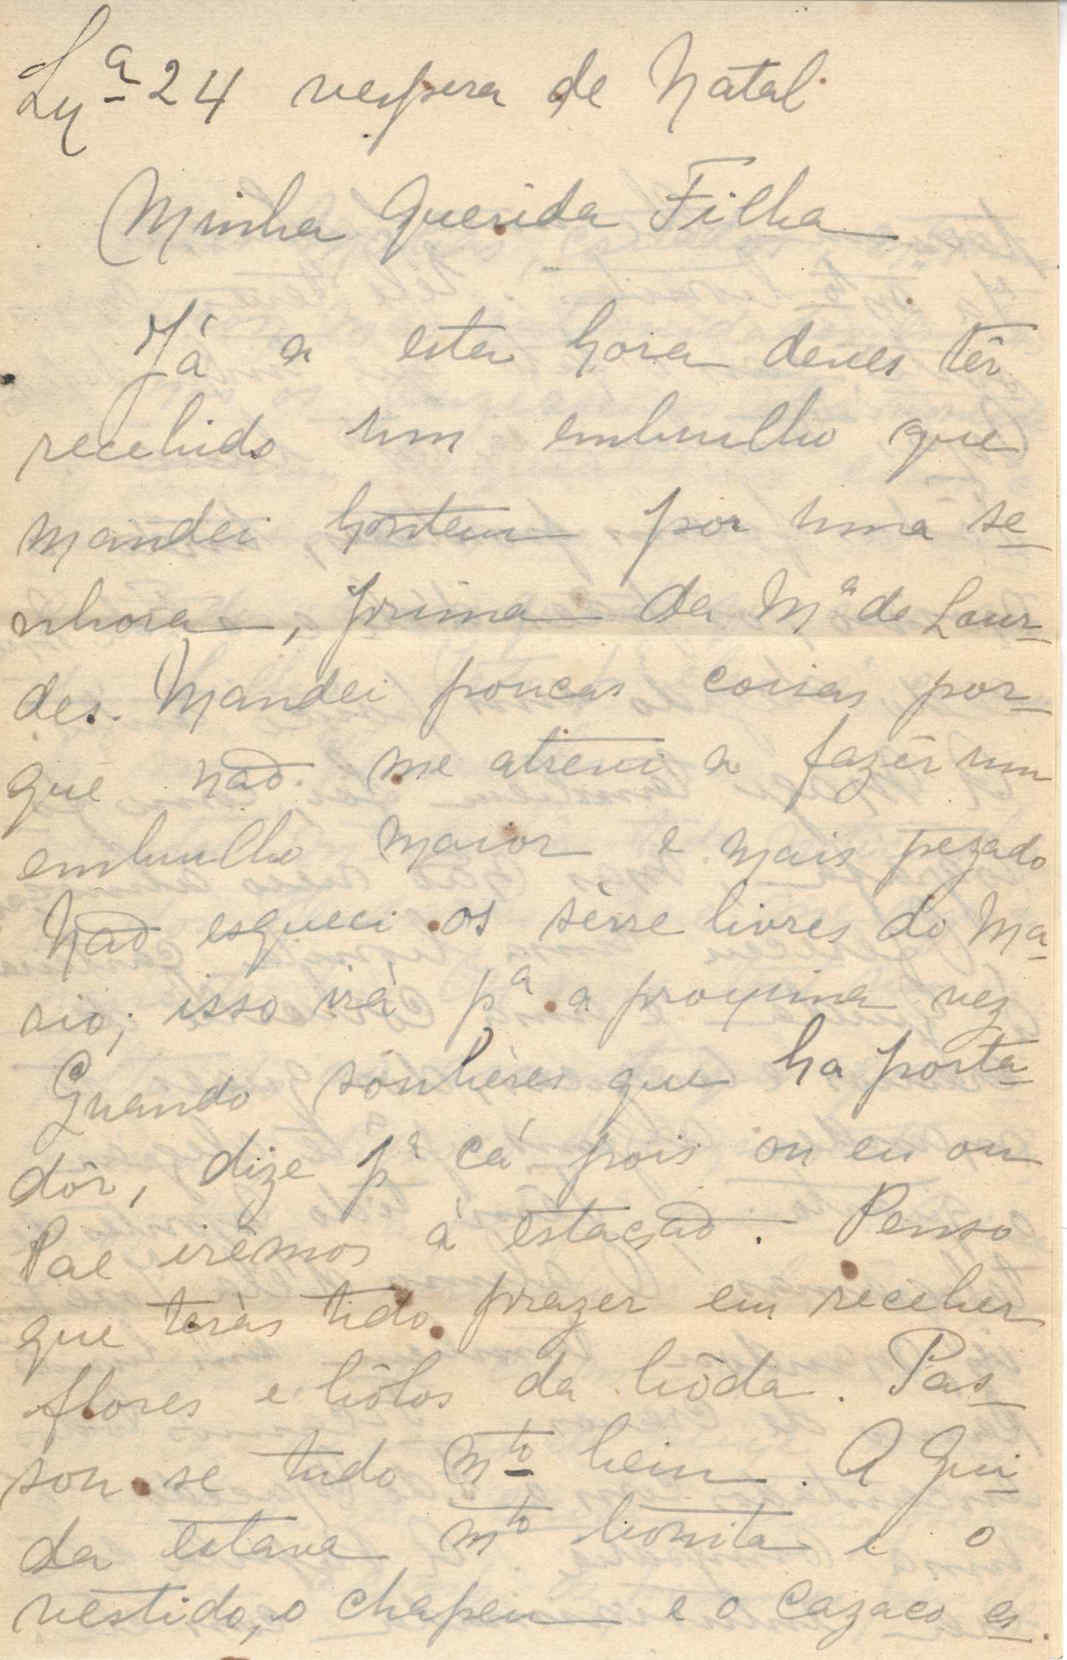 Lxª 24 vespera de Natal
Minha Querida Filha
Já a esta hora deves têr
recebido um embrulho que
mandei hontem por uma se-
nhora, prima da Mª de Lour-
des. Mandei poucas coisas por-
que não me atrevi a fazêr um
embrulho maior e mais pezado
Não esqueci os sèrre livres do Ma-
rio; isso irá pª a proxima vez
Quando soubéres que ha porta-
dôr, dize pª cá pois ou eu ou
Pae irêmos à estação. Penso
que teràs tido prazer em receber
flores e bôlos da bôda. Pas-
sou-se tudo mto bem. A Gui-
da estava mto bonita e o
vestido, o chapeu e o cazaco es-